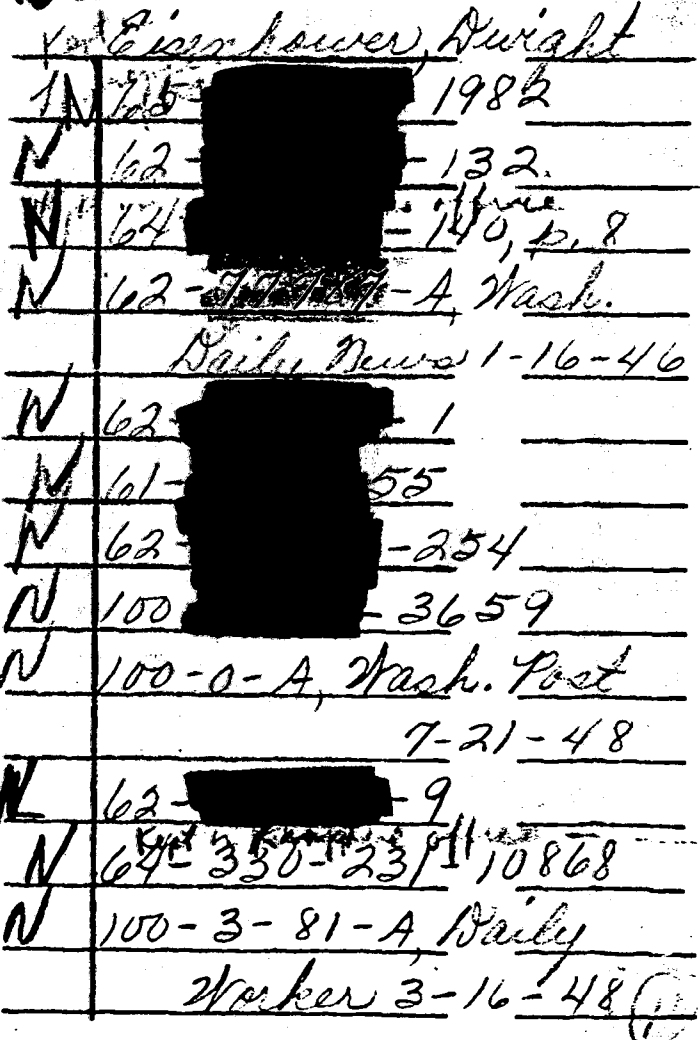 Eisenhower, Dwight
N 65 1982
N 62- -132.
office
N 64 -140, p. 8
N 62-77787-A, Wash.
Daily News 1-16-46
N 62- - 1
N 61- 55
N 62- -254
N 100 - 3659
N 100-0-A, Wash. Post
7-21-48
N 62- - 9
Kept in office
N 64-330-231-10868
N 100-3-81-A, Daily
Worker 3-16-48